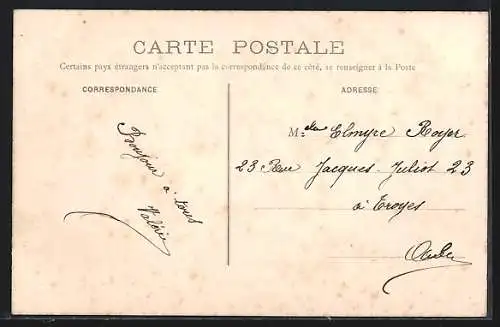 CARTE POSTALE
Certains pays étrangers n'acceptant pas la correspondance de ce côté, se renseigner à la Poste
CORRESPONDANCE
Bonjour
à tous
Valérie
ADRESSE
M:elle Elmyre Royer
23 Rue Jacques Juliot 23
à Troyes
Aube